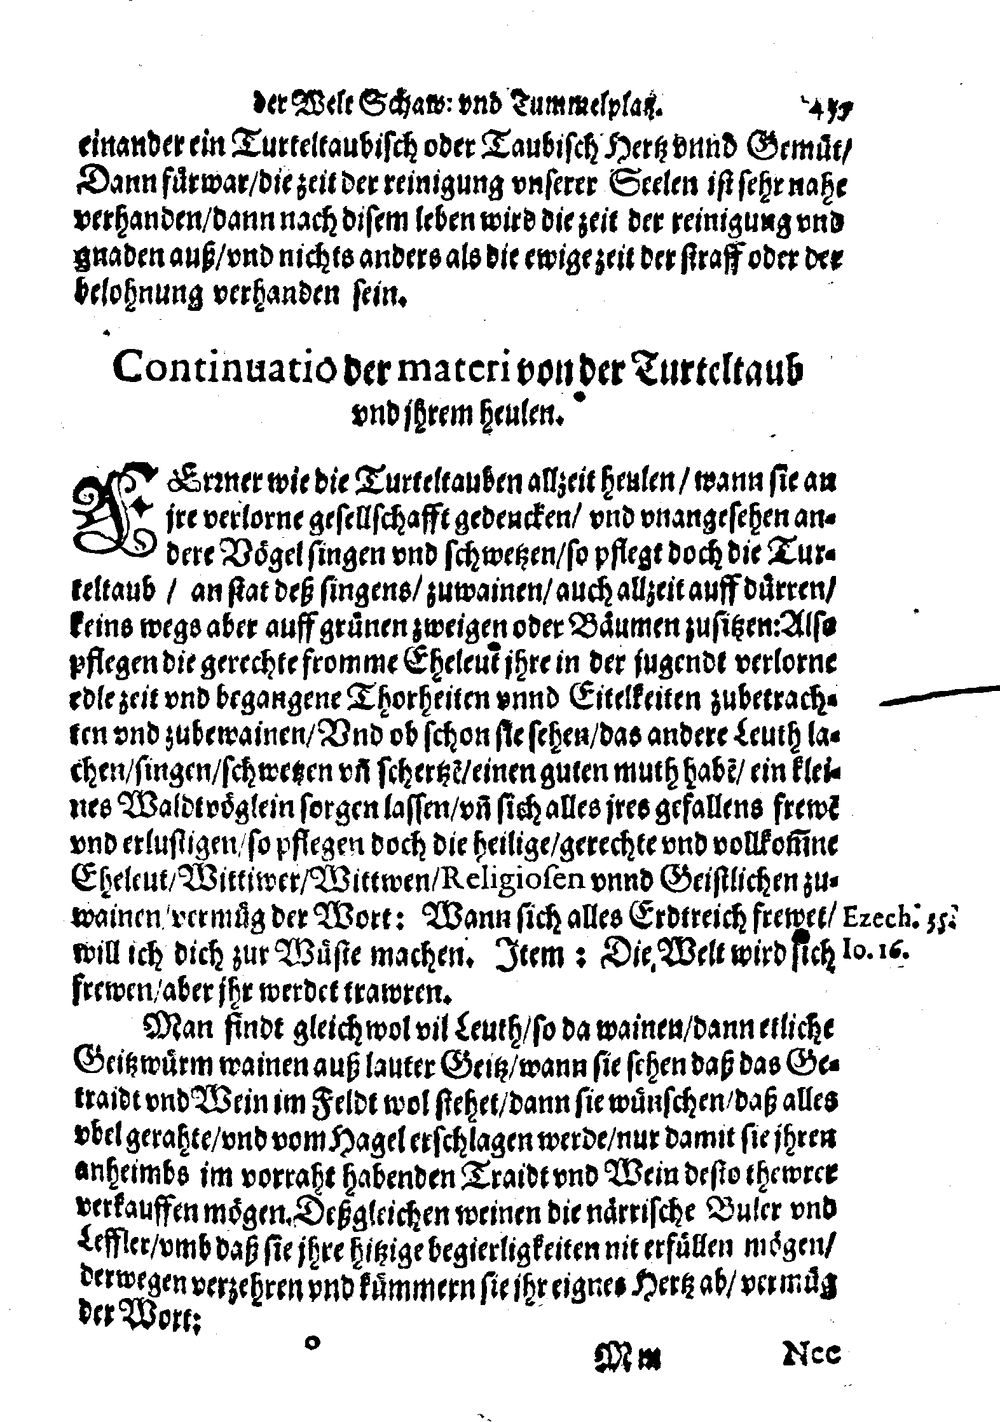 der Welt Schaw: vnd Tummelplatz.
einander ein Turteltaubisch oder Taubisch Hertz vnnd Gemüt/
Dann fürwar/die zeit der reinigung vnserer Seelen ist sehr nahe
verhanden/dann nach disem leben wird die zeit der reinigung vnd
gnaden auß/vnd nichts anders als die ewige zeit der straff oder der
belohnung verhanden sein.
Continuatio der materi von der Turteltaub
vnd jhrem heulen.
FErner wie die Turteltauben allzeit heulen/ wann sie an
jre verlorne gesellschafft gedencken/ vnd vnangesehen an-
dere Vögel singen vnd schwetzen/so pflegt doch die Tur-
teltaub / an stat deß singens/ zuwainen/ auch allzeit auff dürren/
keins wegs aber auff grünen zweigen oder Bäumen zusitzen: Also
pflegen die gerechte fromme Eheleut jhre in der jugendt verlorne
edle zeit vnd begangene Thorheiten vnnd Eitelkeiten zubetrach-
ten vnd zubewainen/ Vnd ob schon sie sehen/das andere Leuth la-
chen/singen/schwetzen vñ schertzẽ/einen guten muth habẽ/ ein klei-
nes Waldtvöglein sorgen lassen/vñ sich alles jres gefallens frewẽ
vnd erlustigen/so pflegen doch die heilige/gerechte vnd vollkom̃ne
Eheleut/Wittiwer/Wittwen/Religiosen vnnd Geistlichen zu-
wainen/vermüg der Wort: Wann sich alles Erdtreich frewet/ Ezech. 35.
will ich dich zur Wüste machen. Item : Die Welt wird sich Io. 16.
frewen/aber jhr werdet trawren.
Man findt gleichwol vil Leuth/so da wainen/dann etliche
Geitzwürm wainen auß lauter Geitz/wann sie sehen daß das Ge-
traidt vnd Wein im Feldt wol stehet/dann sie wünschen/daß alles
vbel gerahte/vnd vom Hagel erschlagen werde/nur damit sie jhren
anheimbs im vorraht habenden Traidt vnd Wein desto thewrer
verkauffen mögen. Deßgleichen weinen die närrische Buler vnd
Leffler/vmb daß sie jhre hitzige begierligkeiten nit erfüllen mögen/
derwegen verzehren vnd kümmern sie jhr eignes Hertz ab/ vermüg
der Wort:
Mm Nec